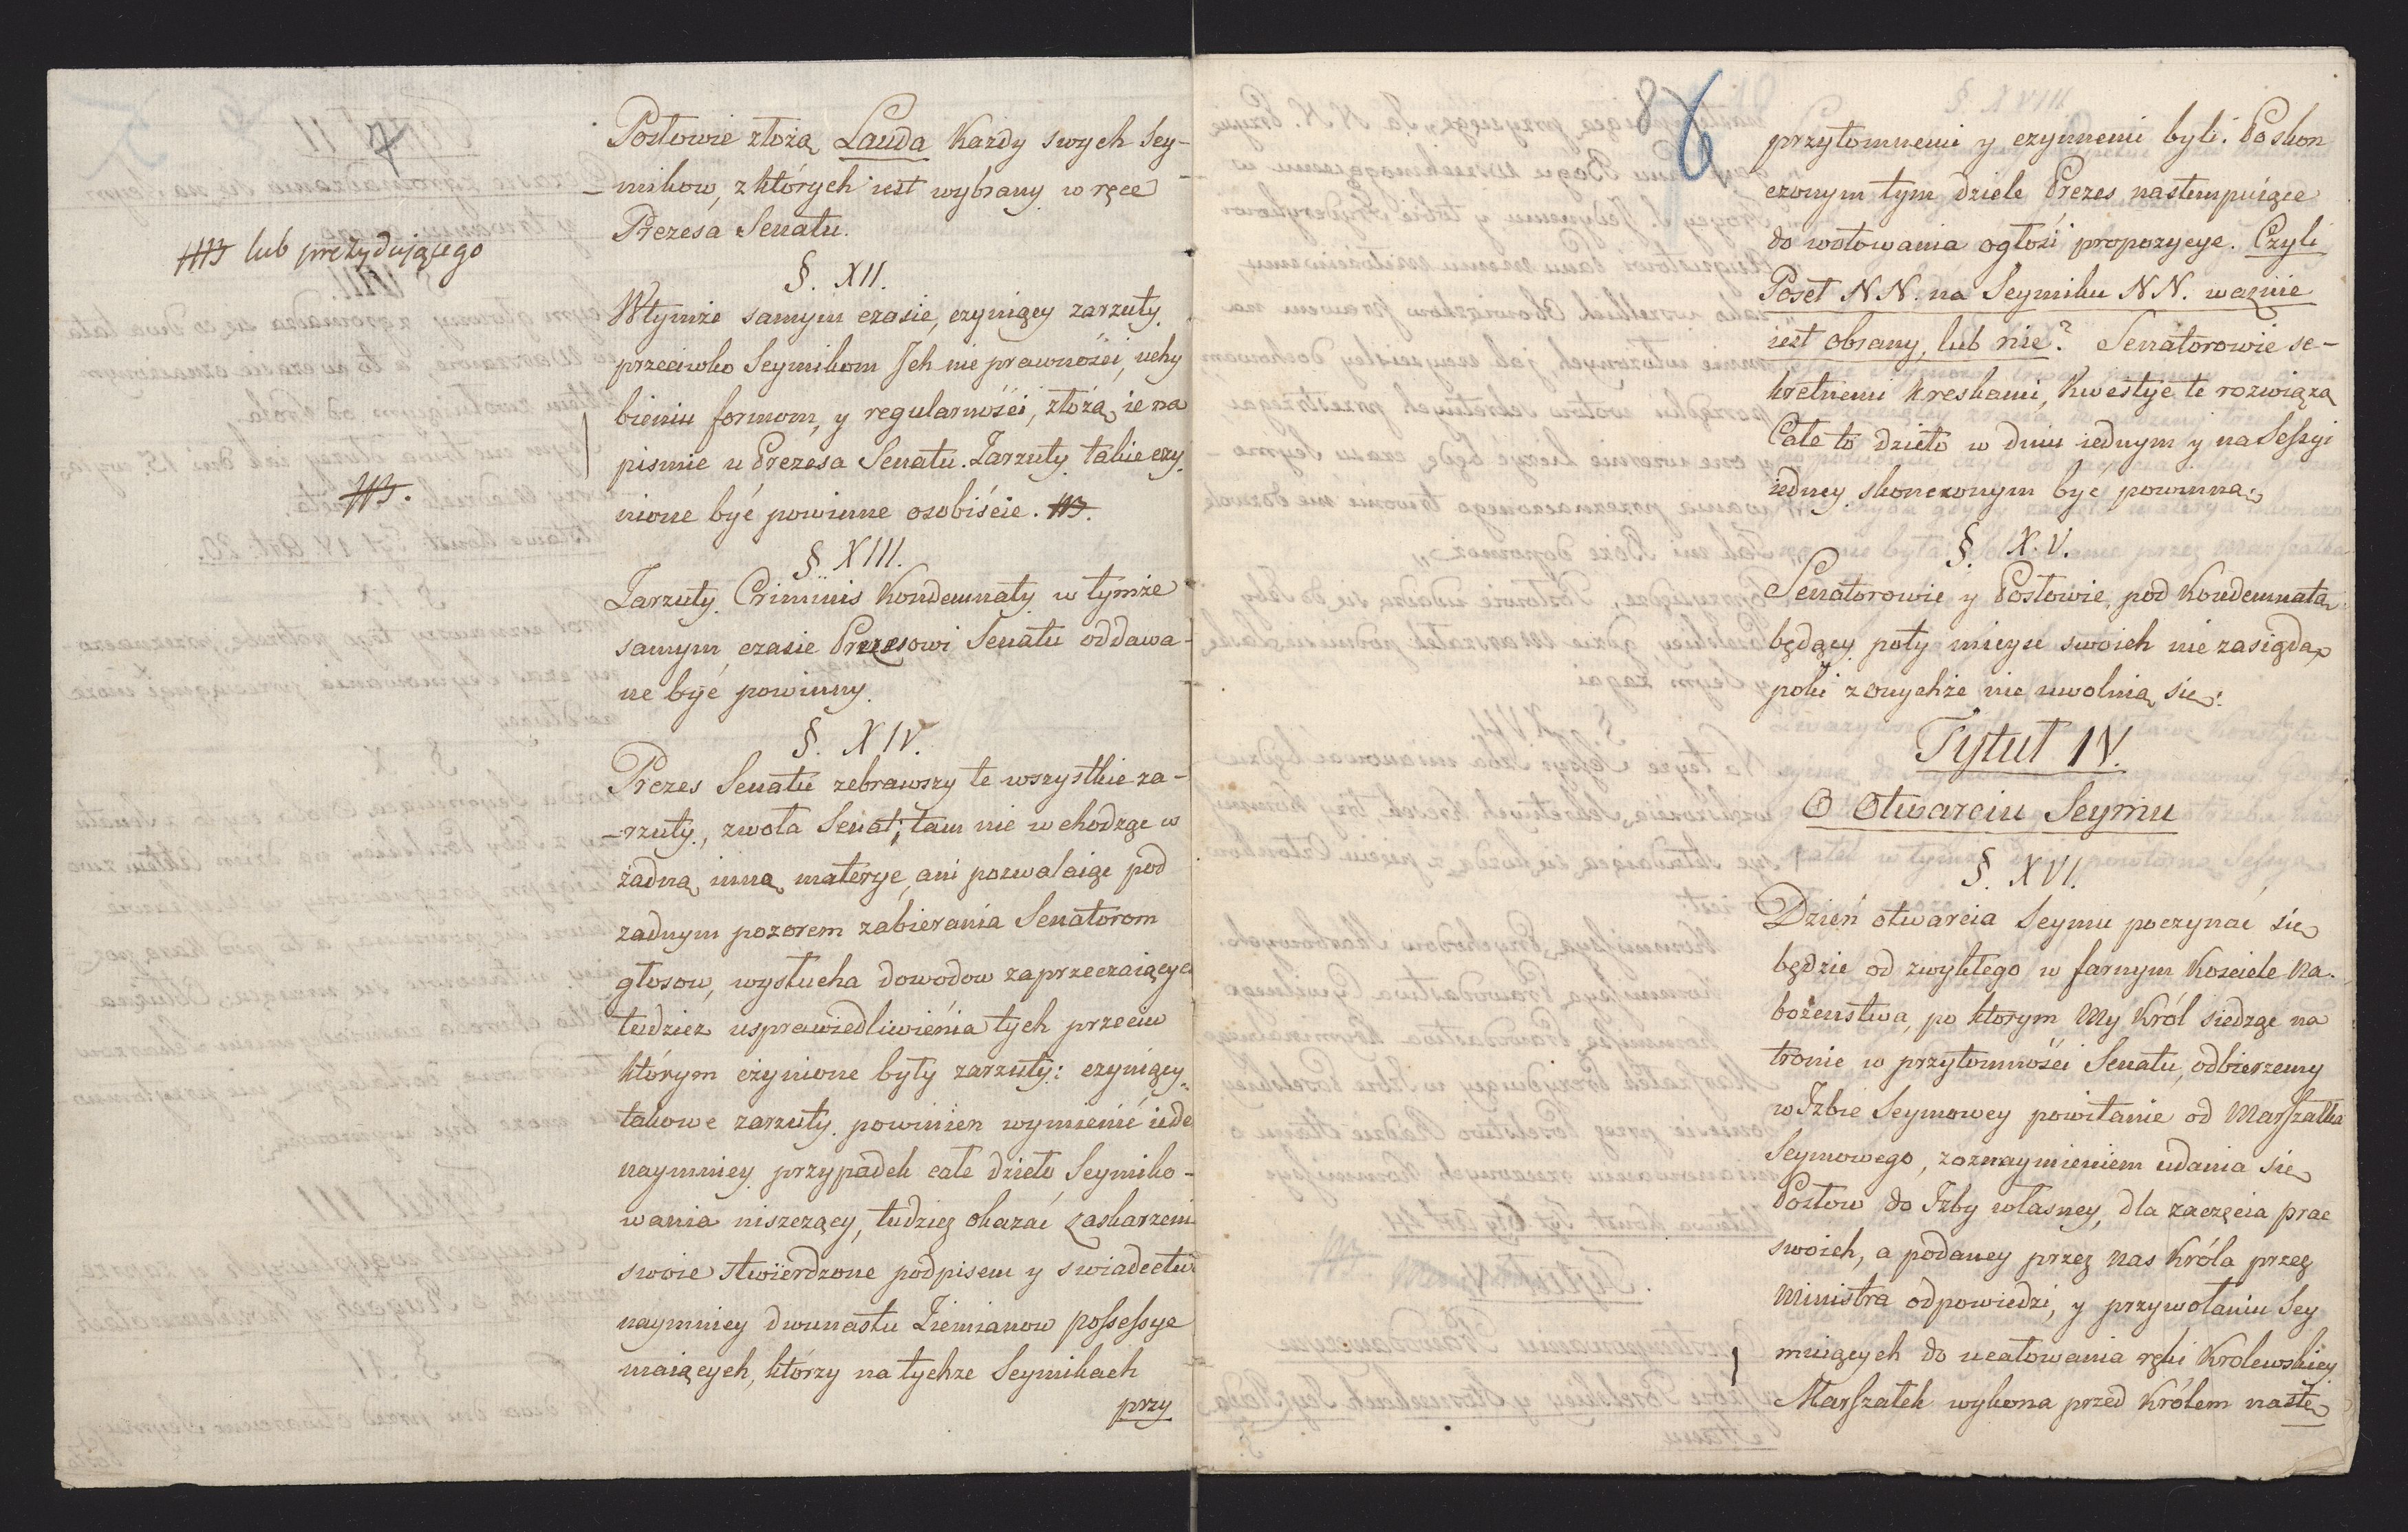 Posłowie złożą Lauda każdy swych Sey-
-mikow, z których iest wybrany w ręce
Prezesa Senatu.
# lub prezydującego
§. XII.
Wtymże samym czasie, czyniący zarzuty
przeciwko Seymikom Jch nie prawności, uchy
bieniu formom, y regularności, złożą ie na
pismie u Prezesa Senatu. Zarzuty takie czy
nione być powinne osobiście.
§. XIII.
Zarzuty Criminis Kondemnaty w tymże
samym czasie Prezesowi Senatu oddawa-
ne być powinny.
§. XIV.
Prezes Senatu zebrawszy te wszystkie za-
-rzuty, zwoła Senat; tam nie wchodząc w
żadną inną materye, ani pozwalaiąc pod
zadnym pozorem zabierania Senatorom
głosow, wysłucha dowodow zaprzeczaiących
tudziez usprawiedliwienia tych przeciw
którym czynione były zarzuty: czyniący
takowe zarzuty powinien wymienić ieden
naymniey przypadek całe dzieło Seymiko-
wania niszczący, tudzież okazać zaskarzeni
swoie stwierdzone podpisem y swiadectw
naymniey dwunastu Ziemianow possessye
maiących, którzy na tychze Seymikach
przy
86
przytomnemi y czynnemi byli. Poskon
czonym tym dziele Prezes nastempuiące
do wotowania ogłosi propozycye. Czyli
Poseł NN. na Seymiku NN. waznie
iest obrany, lub nie? Senatorowie se-
kretnemi kreskami, kwestye te rozwiążą
Całe to dzieło w dniu iednym y na Sessyi
iedney skonczonym byc powinna.
§. X.V.
Senatorowie y Posłowie, pod Kondemnatą
będący poty mieysc swoich nie zasiądą,
poki z onychże nie uwolnią się.
Tytuł IV.
O Otwarciu Seymu
§. XVI.
Dzień otwarcia Seymu poczynać się
będzie od zwykłego w farnym Kosciele Na-
bożenstwa, po którym My Król siedząc na
tronie w przytomności Senatu, odbierzemy
w Izbie Seymowey powitanie od Marszałka
Seymowego, z oznaymieniem udania się
Posłow do Izby własney, dla zaczęcia prac
swoich, a podaney przez nas Króla przez
Ministra odpowiedzi, y przywołaniu Sey
muiących do ucałowania ręki Krolewskiey
Marszałek wykona przed Królem nastę